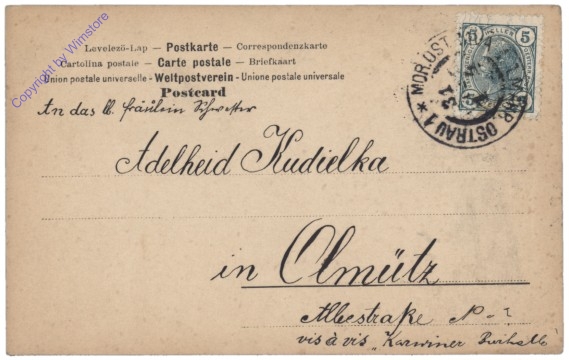 Levelező-Lap — Postkarte — Correspondenzkarte
Cartolina postale — Carte postale — Briefkaart
Union postale universelle - Weltpostverein - Unione postale universale
Postcard
An das lb. fräulein Schwester
Adelheid Kudielka
in Olmütz
vis à vis „Karwiner
5 HELLER 5
MOR. OSTRAU 1
MÄHR. OSTRAU 1
Copyright by Wimstore